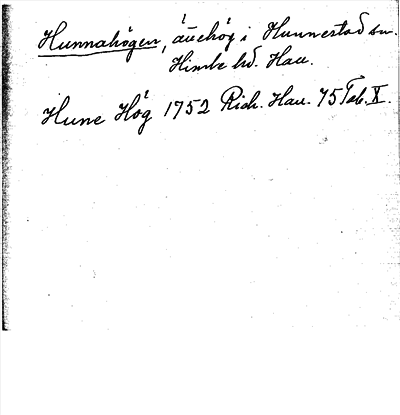 Hunnahögen, ättehög i Hunnestad sn.
Himle hd. Hall.
Hune Hög 1752 Rich. Hall. 75 Tab. X.